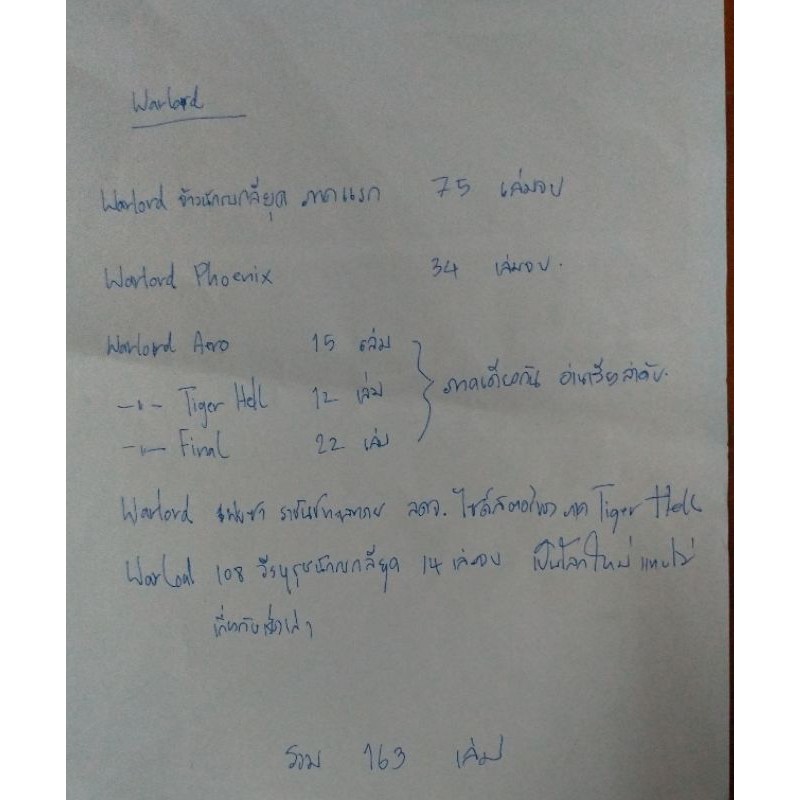 Warlord
Warlord จ้าวนักรบกลียุค ภาคแรก 75 เล่มจบ
Warlord Phoenix 34 เล่มจบ.
Warlord Aero 15 เล่ม
–"– Tiger Hell 12 เล่ม ภาคเดียวกัน อ่านเรียงลำดับ.
–"– Final 22 เล่ม
Warlord ราชันย์ ลตจ. ไซด์สตอรี่ ภาค Tiger Hell
Warlord 108 วีรบุรุษนักรบกลียุค 14 เล่มจบ เป็นโลกใหม่ แทบไม่
เกี่ยวกับเรื่องเก่า
รวม 163 เล่ม